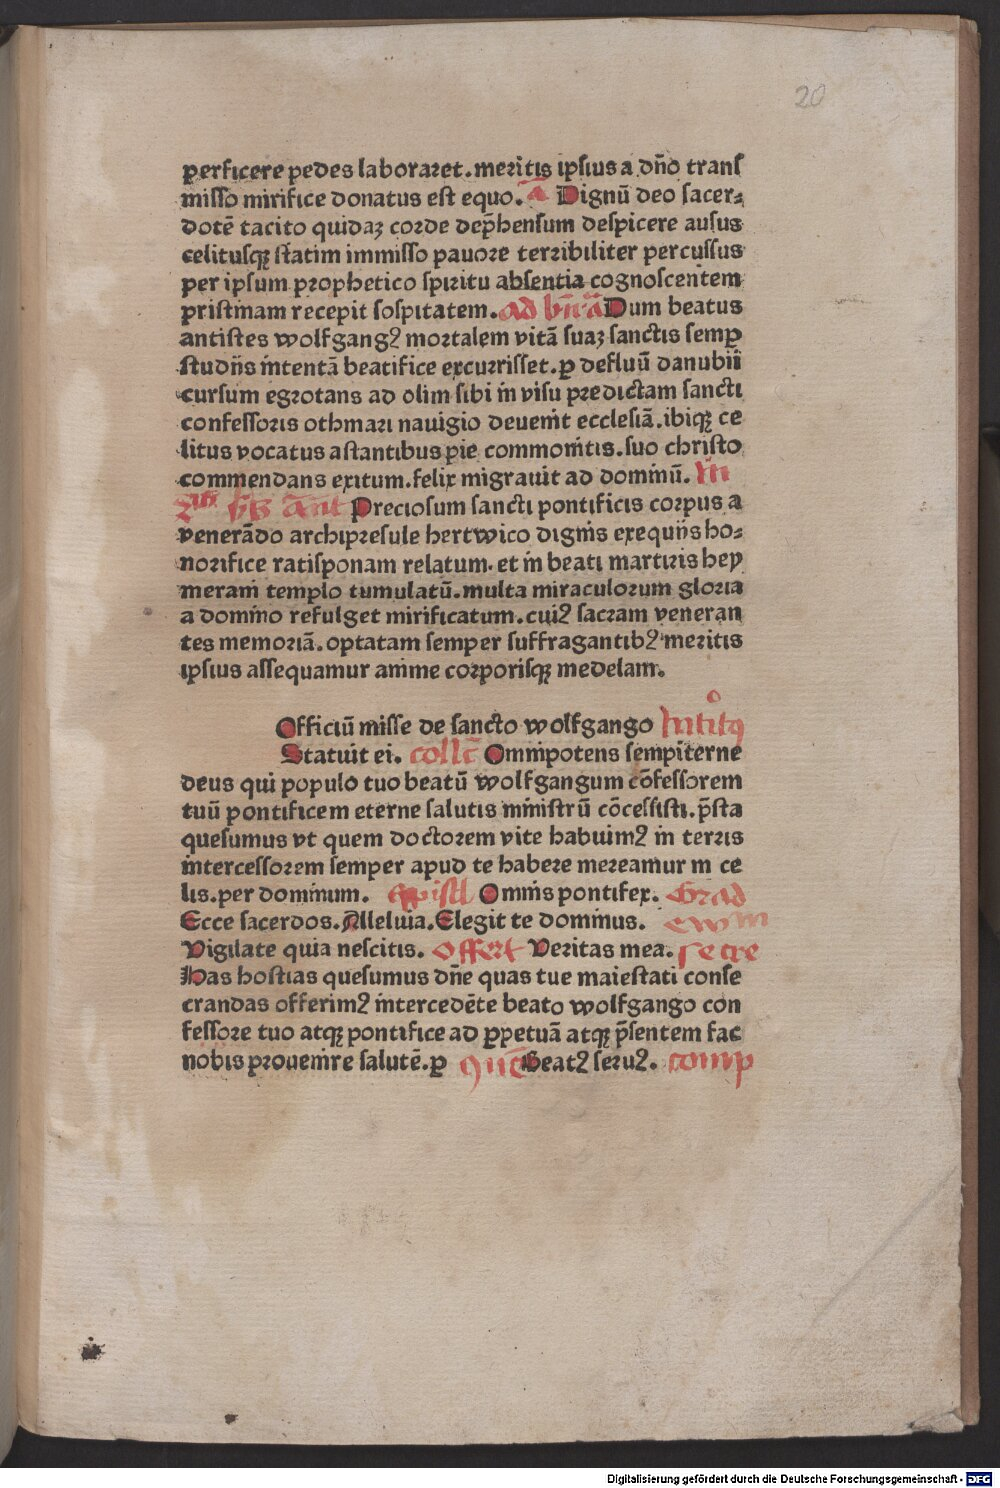 20
perficere pedes laboraret. meritis ipsius a dño transſ
misso mirifice donatus est equo. a̅ Dignū deo sacer⸗
dotē tacito quidaꝫ corde dep̄hensum despicere ausus
celitusqꝫ statim immisso pauore terribiliter percussus
per ipsum prophetico spiritu absentia cognoscentem
pristinam recepit sospitatem. ad bn̄. a̅ Dum beatus
antistes wolfgangꝰ mortalem vitā suaꝫ sanctis semꝑ
studijs intentā beatifice excurrisset. ꝑ defluū danubii
cursum egrotans ad olim sibi in visu predictam sancti
confessoris othmari nauigio deuenit ecclesiā. ibiqꝫ ce
litus vocatus astantibus pie commonitis. suo christo
commendans exitum. felix migrauit ad dominū. In
ijis vr̄is ānt Preciosum sancti pontificis corpus a
venerādo archipresule hertwico dignis exequijs ho⸗
norifice ratisponam relatum. et in beati martiris hey
merami templo tumulatū. multa miraculorum gloria
a domino refulget mirificatum. cuiꝰ sacram veneran
tes memoriā. optatam semper suffragantibꝰ meritis
ipsius assequamur anime corporisqꝫ medelam.
Officiū misse de sancto wolfgango Intitꝰ
Statuit ei. coll̄c Omnipotens sempiterne
deus qui populo tuo beatū wolfgangum cōfessorem
tuū pontificem eterne salutis ministrū cōcessisti. p̄sta
quesumus vt quem doctorem vite habuimꝰ in terris
intercessorem semper apud te habere mereamur in ce
lis. per dominum. Epistl Omnis pontifex. Grad
Ecce sacerdos. Alleluia. Elegit te dominus. ewm
Vigilate quia nescitis. offert Veritas mea. secre
Has hostias quesumus dñe quas tue maiestati conse
crandas offerimꝰ intercedēte beato wolfgango con
fessore tuo atqꝫ pontifice ad ꝑpetuā atqꝫ p̄sentem fac
nobis prouenire salutē. ꝑ qūe Beatꝰ seruꝰ. comp
Digitalisierung gefördert durch die Deutsche Forschungsgemeinschaft - DFG